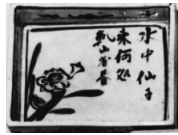 水中仙子
来何処
乾山省書